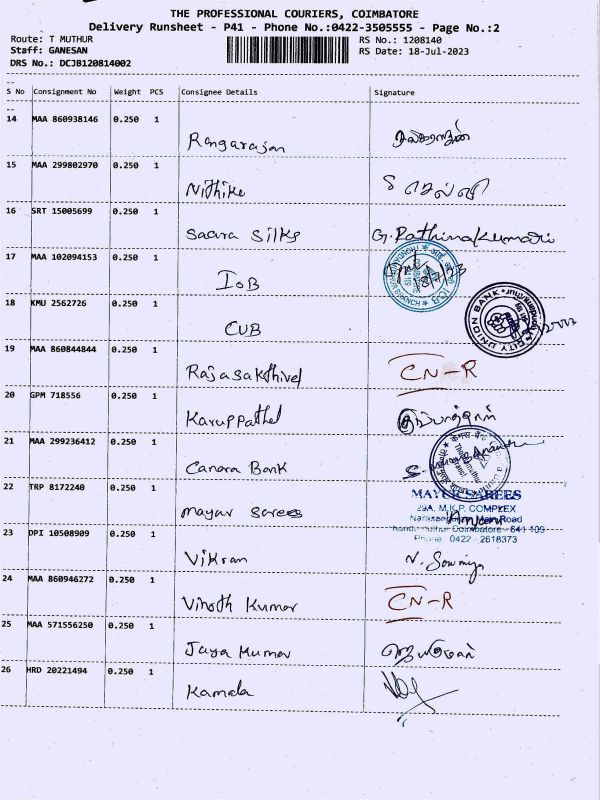 THE PROFESSIONAL COURIERS, COIMBATORE
Delivery Runsheet - P41 - Phone No.:0422-3505555 - Page No.:2
Route: T MUTHUR RS No.: 1208140
Staff: GANESAN RS Date: 18-Jul-2023
DRS No.: DCJB120814002
S No Consignment No Weight PCS Consignee Details Signature
14 MAA 860938146 0.250 1
Rangarajan
15 MAA 299802970 0.250 1
Nithike
16 SRT 15005699 0.250 1
Saara Silks G. Rathinakumari
17 MAA 102094153 0.250 1
IOB 18/7/23
18 KMU 2562726 0.250 1
CUB CITY UNION BANK
19 MAA 860844844 0.250 1
Rajasakthivel CN-R
20 GPM 718556 0.250 1
Karuppathal
21 MAA 299236412 0.250 1
Canara Bank
22 TRP 8172240 0.250 1
MAYUR SAREES
29A, M.K.P. COMPLEX
mayur sarees Main Road
Coimbatore - 641 109
Phone: 0422 - 2618373
23 DPI 10508909 0.250 1
Vikran V. Sowmiya
24 MAA 860946272 0.250 1
Vinoth Kumar CN-R
25 MAA 571556250 0.250 1
Jaya Kumar ஜெயகுமார்
26 HRD 20221494 0.250 1
Kamala